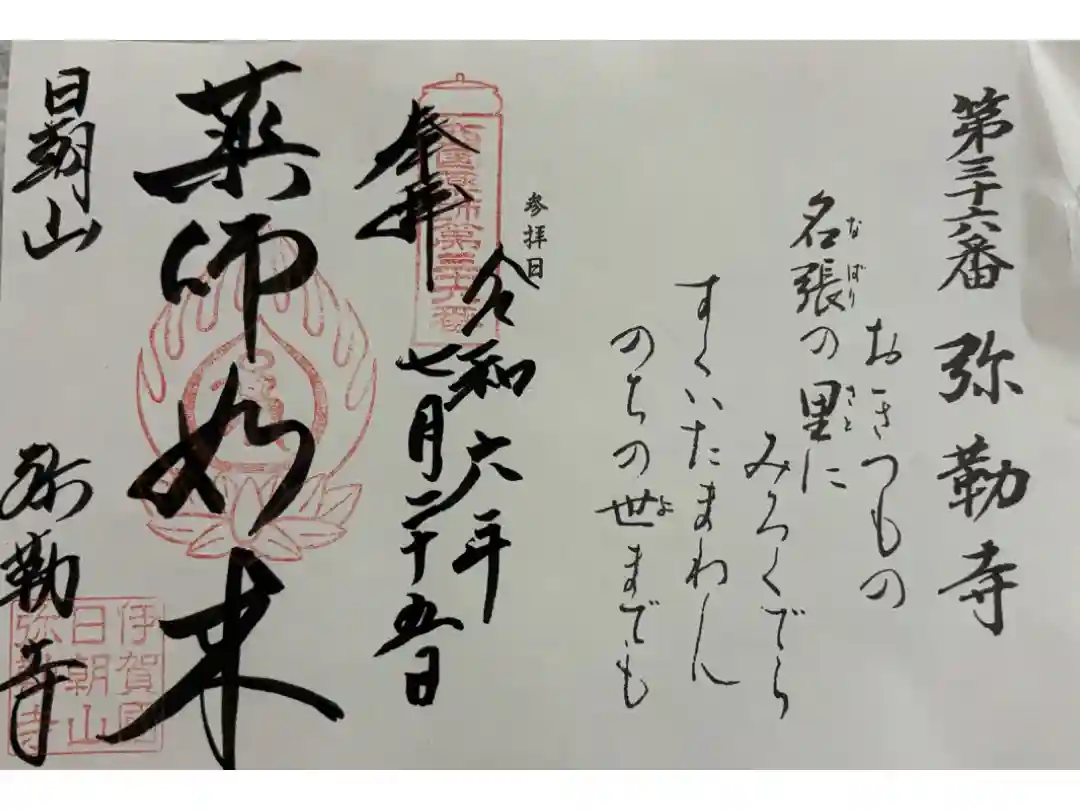 第三十六番 弥勒寺
おきつもの
名張の里に
なばり
さと
みろくでら
すくいたまわん
のちの世までも
よ
参拝日
令和六年
七月二十五日
奉拝
西国薬師第三十六番
薬師如来
日朝山 弥勒寺
伊賀国
日朝山
弥勒寺